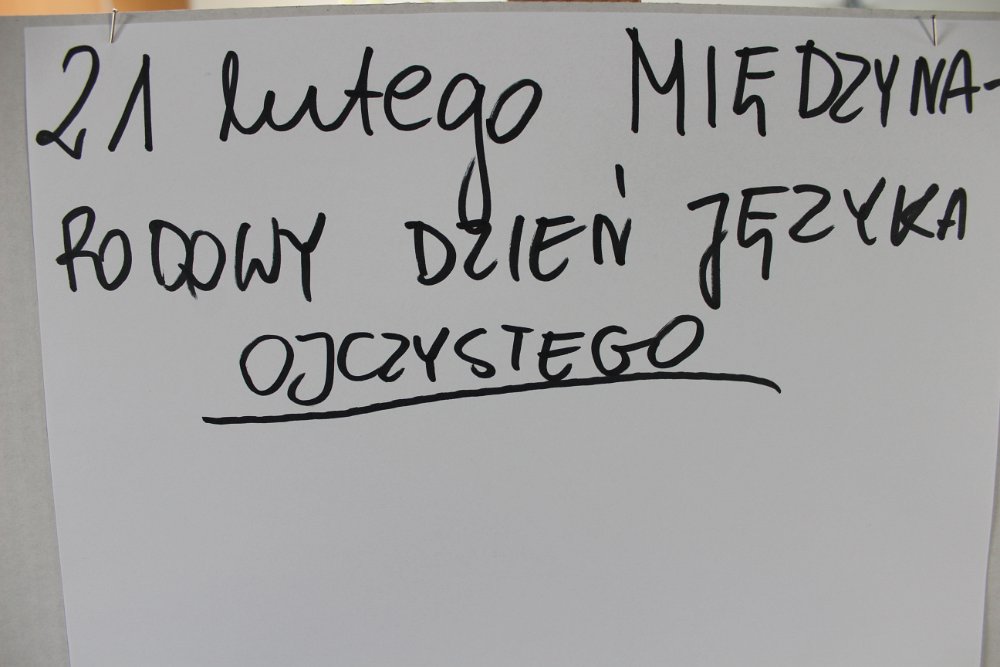 21 lutego MIĘDZYNA-
RODOWY DZIEŃ JĘZYKA
OJCZYSTEGO